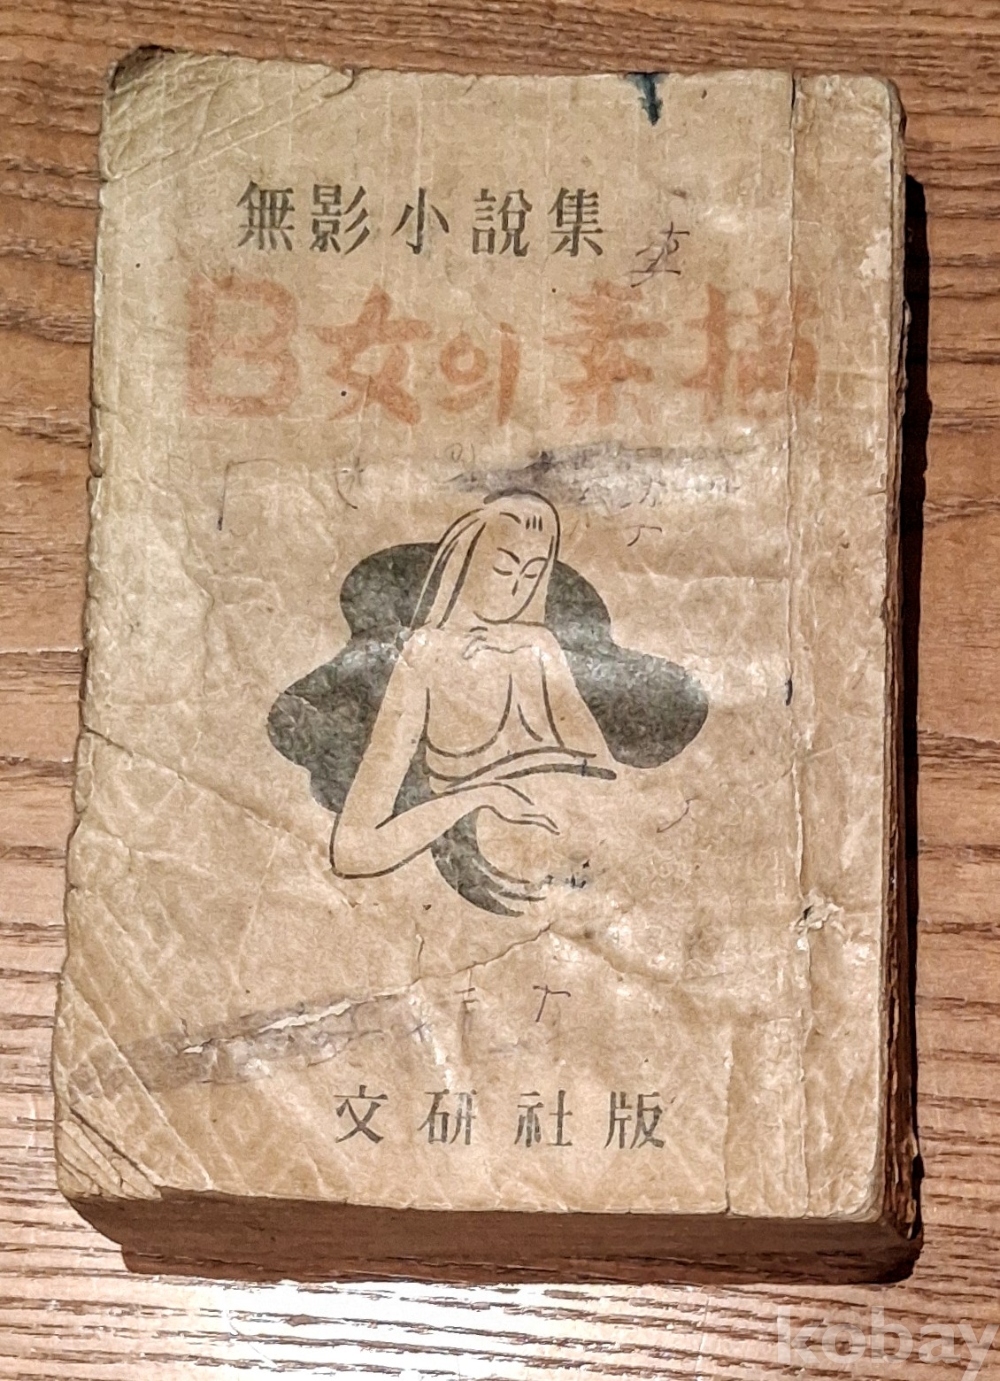 無影小說集
B女의 素描
文硏社版
kobay